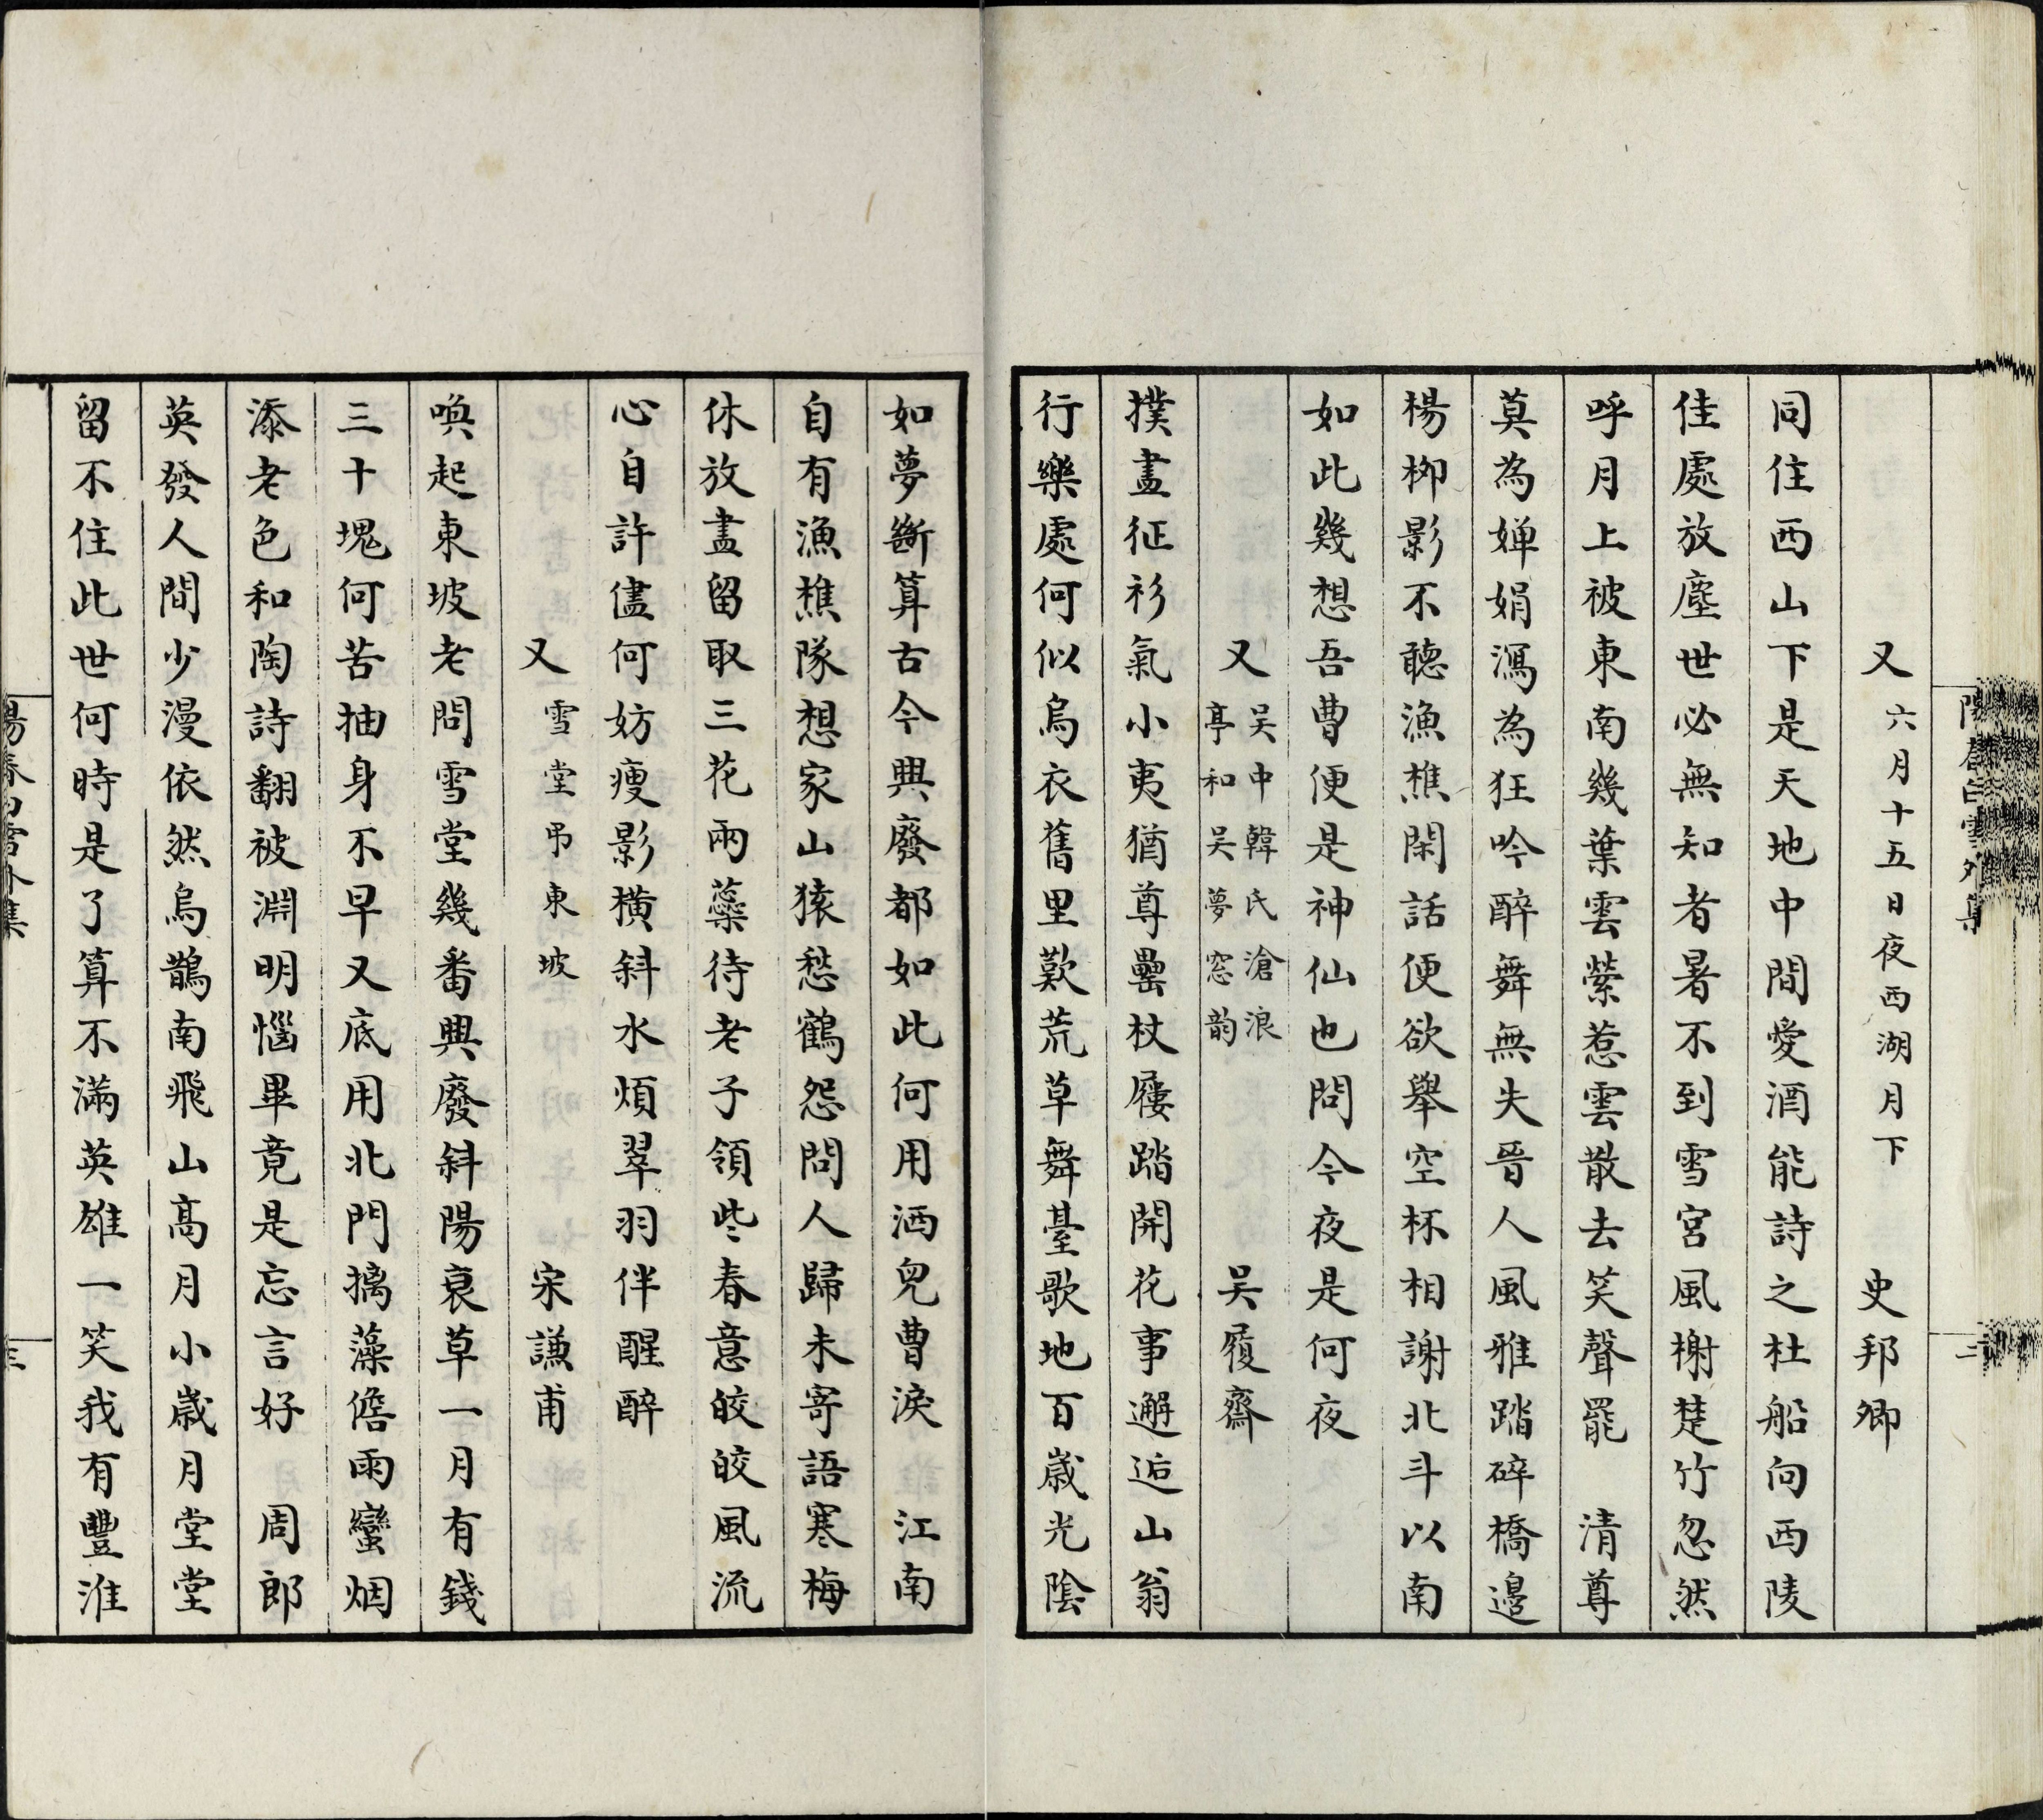 陽春白雪外集
二
又 六月十五日夜西湖月下 史邦卿
同住西山下是天地中間愛酒能詩之杜船向西陵
佳處放塵世必無知者暑不到雪宮風榭楚竹忽然
呼月上被東南幾葉雲縈惹雲散去笑聲罷 清尊
莫為嬋娟瀉為狂吟醉舞無失晉人風雅踏碎橋邊
楊柳影不聽漁樵閑話便欲舉空杯相謝北斗以南
如此幾想吾曹便是神仙也問今夜是何夜
又 吴中韓氏滄浪亭和吴夢窓韵 吴履齋
撲盡征衫氣小夷猶尊罍杖屨踏開花事邂逅山翁
行樂處何似烏衣舊里歎荒草舞臺歌地百歲光陰
如夢斷算古今興廢都如此何用洒兒曹淚 江南
自有漁樵隊想家山猿愁鶴怨問人歸未寄語寒梅
休放盡留取三花兩蘂待老子領些春意皎皎風流
心自許儘何妨瘦影橫斜水煩翠羽伴醒醉
又 雪堂弔東坡 宋謙甫
喚起東坡老問雪堂幾番興廢斜陽衰草一月有錢
三十塊何苦抽身不早又底用北門摛藻儋雨蠻烟
添老色和陶詩翻被淵明惱畢竟是忘言好 周郎
英發人間少漫依然烏鵲南飛山高月小歲月堂堂
留不住此世何時是了算不滿英雄一笑我有豐淮
陽春白雪外集
三